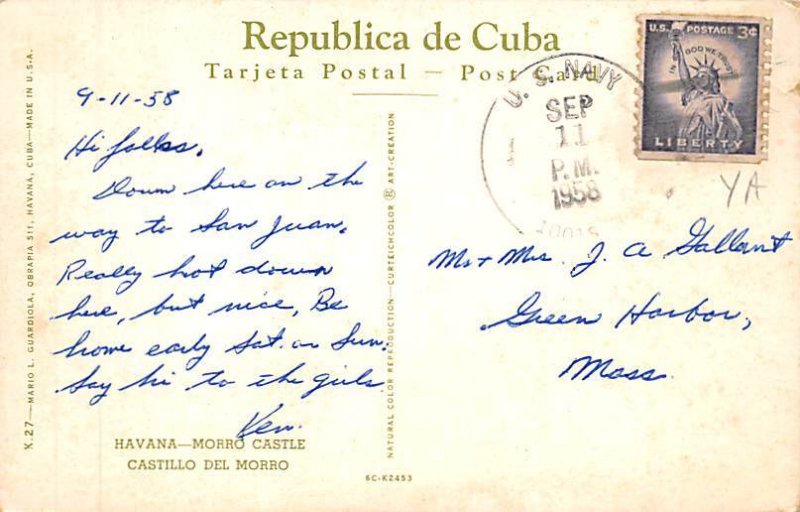 Republica de Cuba
Tarjeta Postal — Post Card
U.S. POSTAGE 3¢
IN GOD WE TRUST
LIBERTY
U. S. NAVY
SEP
11
P.M.
1958
YA
9-11-58
Hi folks,
Down here on the
way to San Juan.
Really hot down
here, but nice, Be
home early Sat. or Sun.
Say hi to the girls
Ken.
Mr + Mrs. J. A Gallant
Green Harbor,
Mass.
HAVANA—MORRO CASTLE
CASTILLO DEL MORRO
6C-K2453
X.27—MARIO L. GUARDIOLA, OBRAPIA 511, HAVANA, CUBA—MADE IN U.S.A.
NATURAL COLOR REPRODUCTION—CURTEICHCOLOR ® ART-CREATION